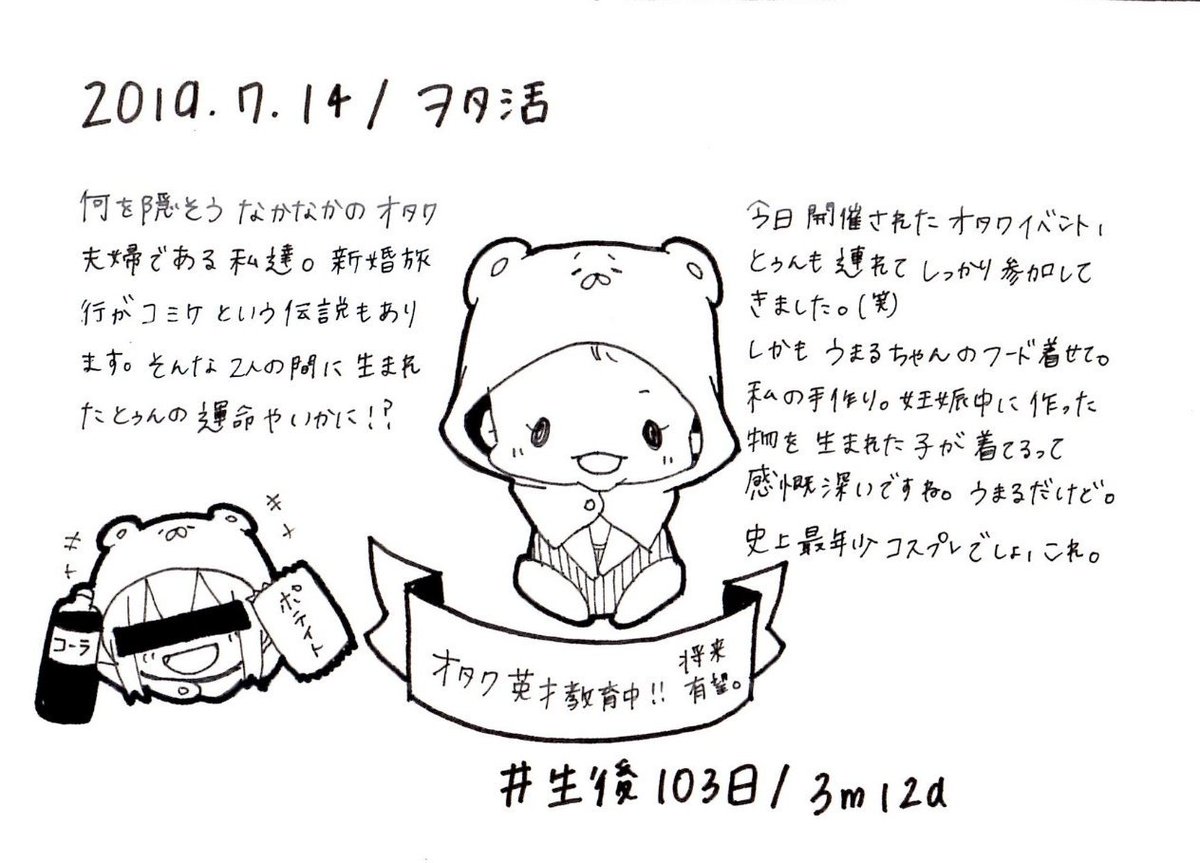 2019.7.14/ヲタ活
何を隠そう なかなかの オタク
夫婦である 私達。新婚旅
行が コミケ という 伝説もあり
ます。そんな 2人の間に 生まれ
たとぅんの 運命やいかに!?
今日 開催された オタクイベント、
とぅんも 連れて しっかり 参加して
きました。(笑)
しかも うまるちゃんのフード 着せて。
私の手作り。妊娠中に 作った
物を 生まれた 子が 着てるって
感慨深いですね。うまるだけど。
史上最年少 コスプレでしょ、これ。
コーラ
ポテイト
オタク 英才教育中!!
将来
有望。
#生後103日/3m12d